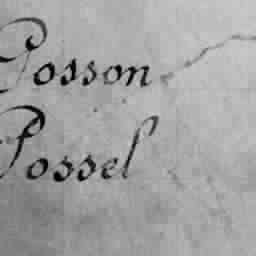 Posson
Possel